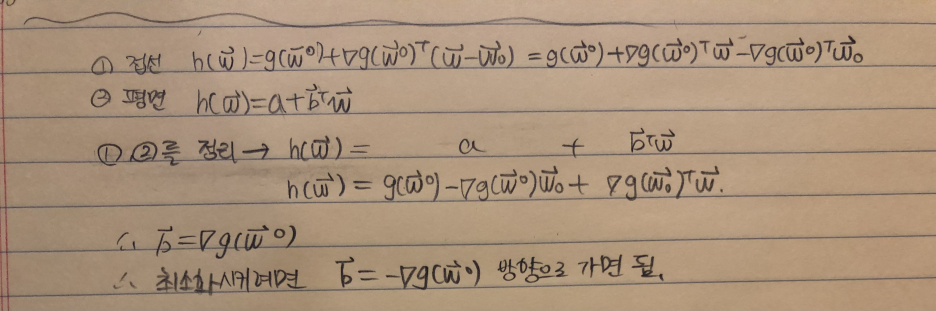 ① 접선 h(w⃗)=g(w⃗⁰)+∇g(w⃗⁰)ᵀ(w⃗-w⃗₀) = g(w⃗⁰)+∇g(w⃗⁰)ᵀw⃗-∇g(w⃗⁰)ᵀw⃗₀
② 평면 h(w⃗)=a+b⃗ᵀw⃗
① ②를 정리 → h(w⃗) = a + b⃗ᵀw⃗
h(w⃗) = g(w⃗⁰)-∇g(w⃗⁰)w⃗₀ + ∇g(w⃗₀)ᵀw⃗.
∴ b⃗=∇g(w⃗⁰)
∴ 최소화시키려면 b⃗=-∇g(w⃗⁰) 방향으로 가면 됨.